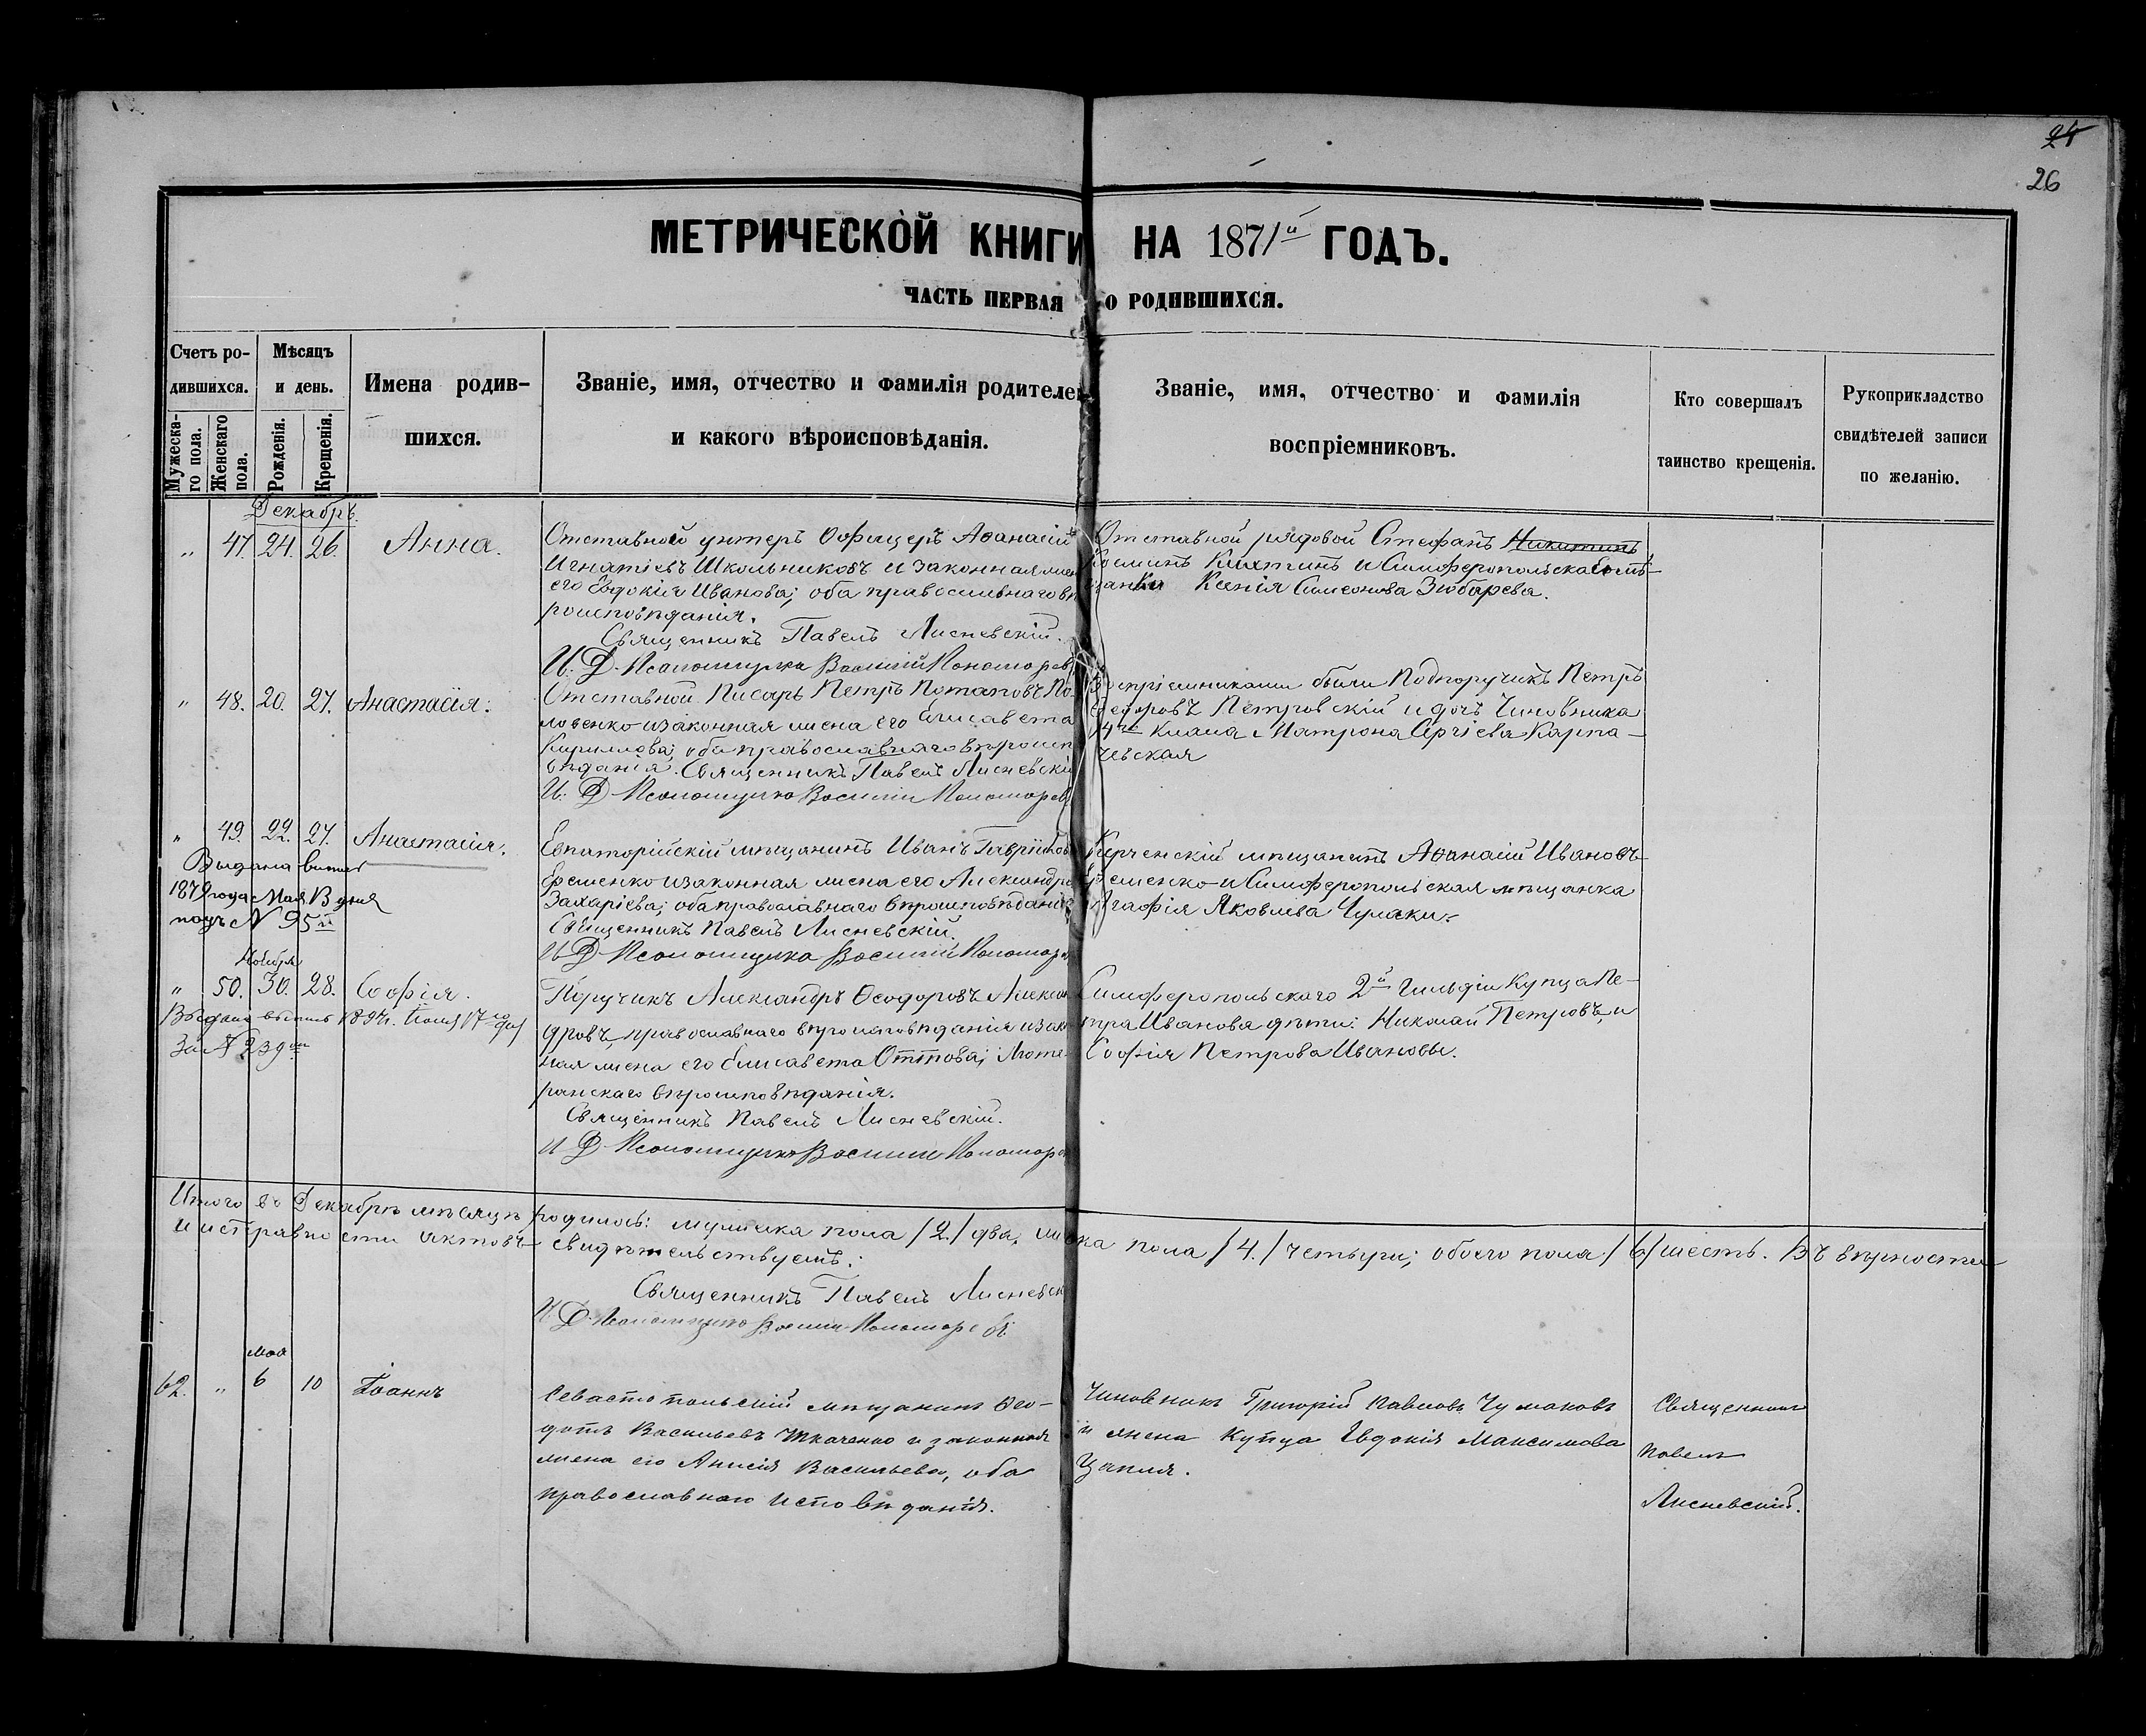 24
26
МЕТРИЧЕСКОЙ КНИГИ НА 1871й ГОДЪ.
ЧАСТЬ ПЕРВАЯ О РОДИВШИХСЯ.
Счетъ родившихся.
Мужескаго пола.
Женскаго пола.
Мѣсяцъ и день.
Рожденія.
Крещенія.
Имена родившихся.
Званіе, имя, отчество и фамилія родителей
и какого вѣроисповѣданія.
Званіе, имя, отчество и фамилія
воспріемниковъ.
Кто совершалъ
таинство крещенія.
Рукоприкладство
свидѣтелей записи
по желанію.
Декабрь.
" 47. 24. 26. Анна.
Отставной унтеръ Офицеръ Аѳанасій
Игнатіевъ Школьниковъ и законная жена
его Евдокія Иванова; оба православнаго вѣ
роисповѣданія.
Священникъ Павелъ Лисневскій.
И. Д. Псаломщика Василій Пономарев
Отставной рядовой Стефанъ Никитинъ
и Симферопольская мѣ-
щанка Ксенія Симеонова Зюбарева.
" 48. 20. 27. Анастасія.
Отставной Писарь Петръ Потаповъ По
ловенко и законная жена его Елисавета
Кириллова; оба православнаго вѣроисп
вѣданія. Священникъ Павелъ Лисневскій
И. Д. Псаломщика Василій Пономарев
Воспріемниками были Подпоручикъ Петръ
Ѳедоровъ Петровскій и дочь Чиновника
14го Класа Матрона Сергіева Карпа-
чевская
" 49. 22. 27. Анастасія.
Выдана выпись
1879 года Мая 13 дня
подъ N 95й
Евпаторійскій мѣщанинъ Иванъ Гавріиловъ
Еременко и законная жена его Александра
Захаріева; оба православнаго вѣроисповѣданія
Священникъ Павелъ Лисневскій.
И. Д. Псаломщика Василій Пономарев
Керченскій мѣщанинъ Аѳанасій Ивановъ
Еременко и Симферопольская мѣщанка
Агафія Яковлева Чумаки.
Ноября
" 50. 30. 28. Софія.
Выдана выпись 1894г. Іюня 17го дня
За N 239м
Поручикъ Александръ Ѳеодоровъ Алексан
дровъ, православнаго вѣроисповѣданія и закон
ная жена его Елисавета Оттова; Люте-
ранскаго вѣроисповѣданія.
Священникъ Павелъ Лисневскій.
И. Д. Псаломщика Василій Пономарев
Симферопольскаго 2й Гильдіи Купца Пе-
тра Иванова дѣти: Николай Петровъ, и
Софія Петрова Ивановы.
Итого въ Декабрѣ мѣсяцѣ родилось: мужска пола /2/ два, женска пола /4./ четыри; обоего пола /6/ шесть. Въ вѣрности
и исправности актовъ свидѣтельствуемъ:
Священникъ Павелъ Лисневск
И. Д. Псаломщика Василій Пономаревъ
Мая
62. " 6 10 Іоаннъ
Севастопольскій мѣщанинъ Ѳео-
дотъ Васильевъ Ткаченко и законная
жена его Анисія Васильева, оба
православнаго исповѣданія.
Чиновникъ Григорій Павловъ Чумаковъ
и жена Купца Евдокія Максимова
Цапля.
Священникъ
Павелъ
Лисневскій.